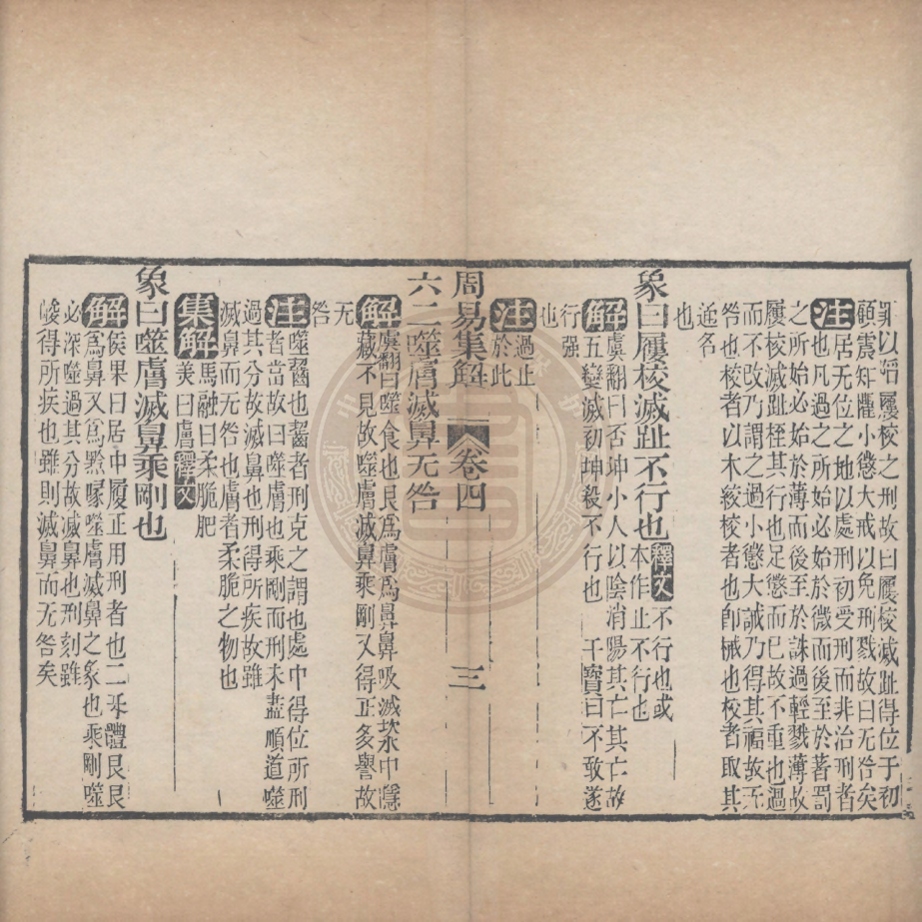 罪以踣屨校之刑故曰屨校滅趾得位于初
顧震知懼小懲大戒以免刑戮故曰无咎矣
注居无位之地以處刑初受刑而非治刑者
也凡過之所始必始於微而後至於著罰
之所始必始於薄而後至於誅過輕戮薄故
屨校滅趾桎其行也足懲而已故不重也過
而不改乃謂之過小懲大誡乃得其福故无
咎也校者以木絞校者也卽械也校者取其
通名
也
象曰屨校滅趾不行也釋文不行也或
本作止不行也
解虞翻曰否坤小人以陰消陽其亡其亡故
五變滅初坤殺不行也 干寶曰不敢遂
行强
也
注過止
於此
周易集解 卷四 三
六二噬膚滅鼻无咎
解虞翻曰噬食也艮爲膚爲鼻鼻吸滅坎水中隱
藏不見故噬膚滅鼻乘剛又得正多譽故
无
咎
注噬齧也齧者刑克之謂也處中得位所刑
者當故曰噬膚也乘剛而刑未盡順道噬
過其分故滅鼻也刑得所疾故雖
滅鼻而无咎也膚者柔脆之物也
集解馬融曰柔脆肥
美曰膚釋文
象曰噬膚滅鼻乘剛也
解侯果曰居中履正用刑者也二互體艮艮
爲鼻又爲黔喙噬膚滅鼻之象也乘剛噬
必深噬過其分故滅鼻也刑刻雖
峻得所疾也雖則滅鼻而无咎矣